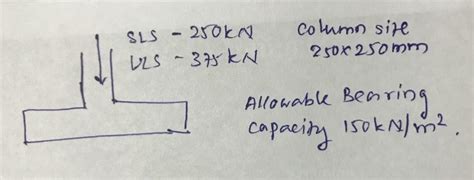 SLS - 250kN
ULS - 375 kN
Column size
250x250mm
Allowable Bearing
Capacity 150kN/m².